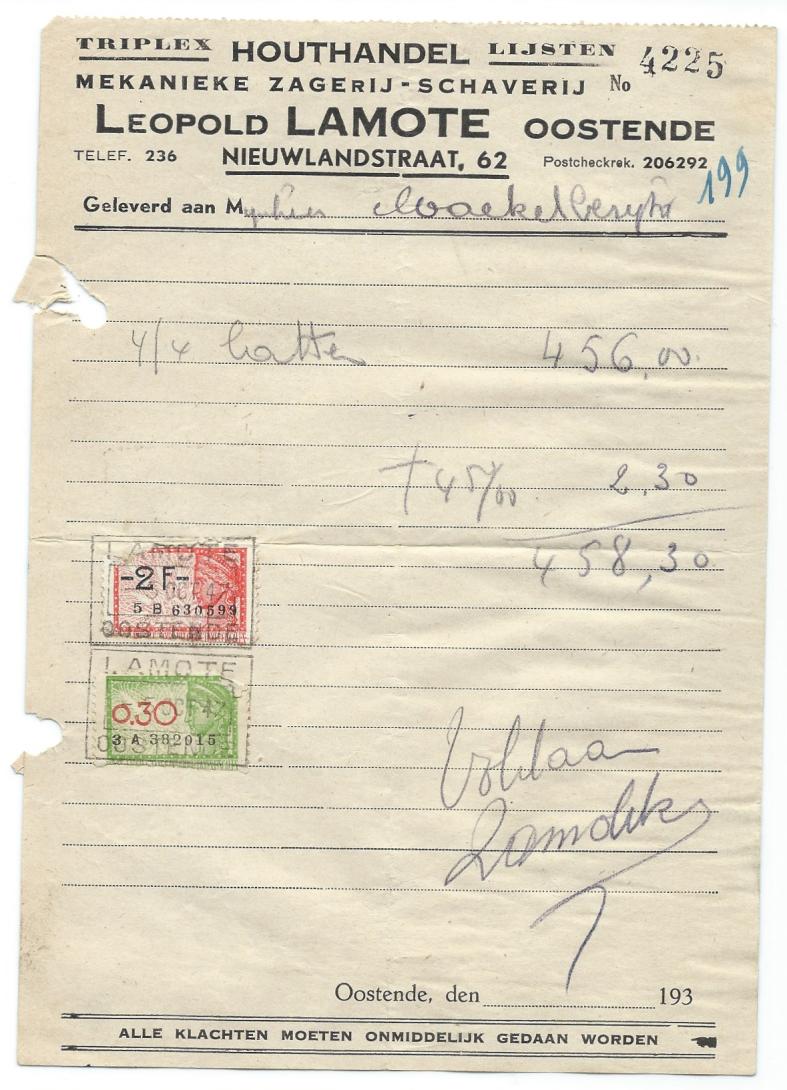 TRIPLEX HOUTHANDEL LIJSTEN 4225
MEKANIEKE ZAGERIJ-SCHAVERIJ No
LEOPOLD LAMOTE OOSTENDE
TELEF. 236 NIEUWLANDSTRAAT, 62 Postcheckrek. 206292
199
Geleverd aan Mynheer
4/4 latten 456,00
2,30
458,30
LAMOTE
-2 F-
OCT 47
5 B 630599
OOSTENDE
LAMOTE
0.30
5 OCT 47
3 A 382015
OOSTENDE
Voldaan
Oostende, den 193
ALLE KLACHTEN MOETEN ONMIDDELIJK GEDAAN WORDEN